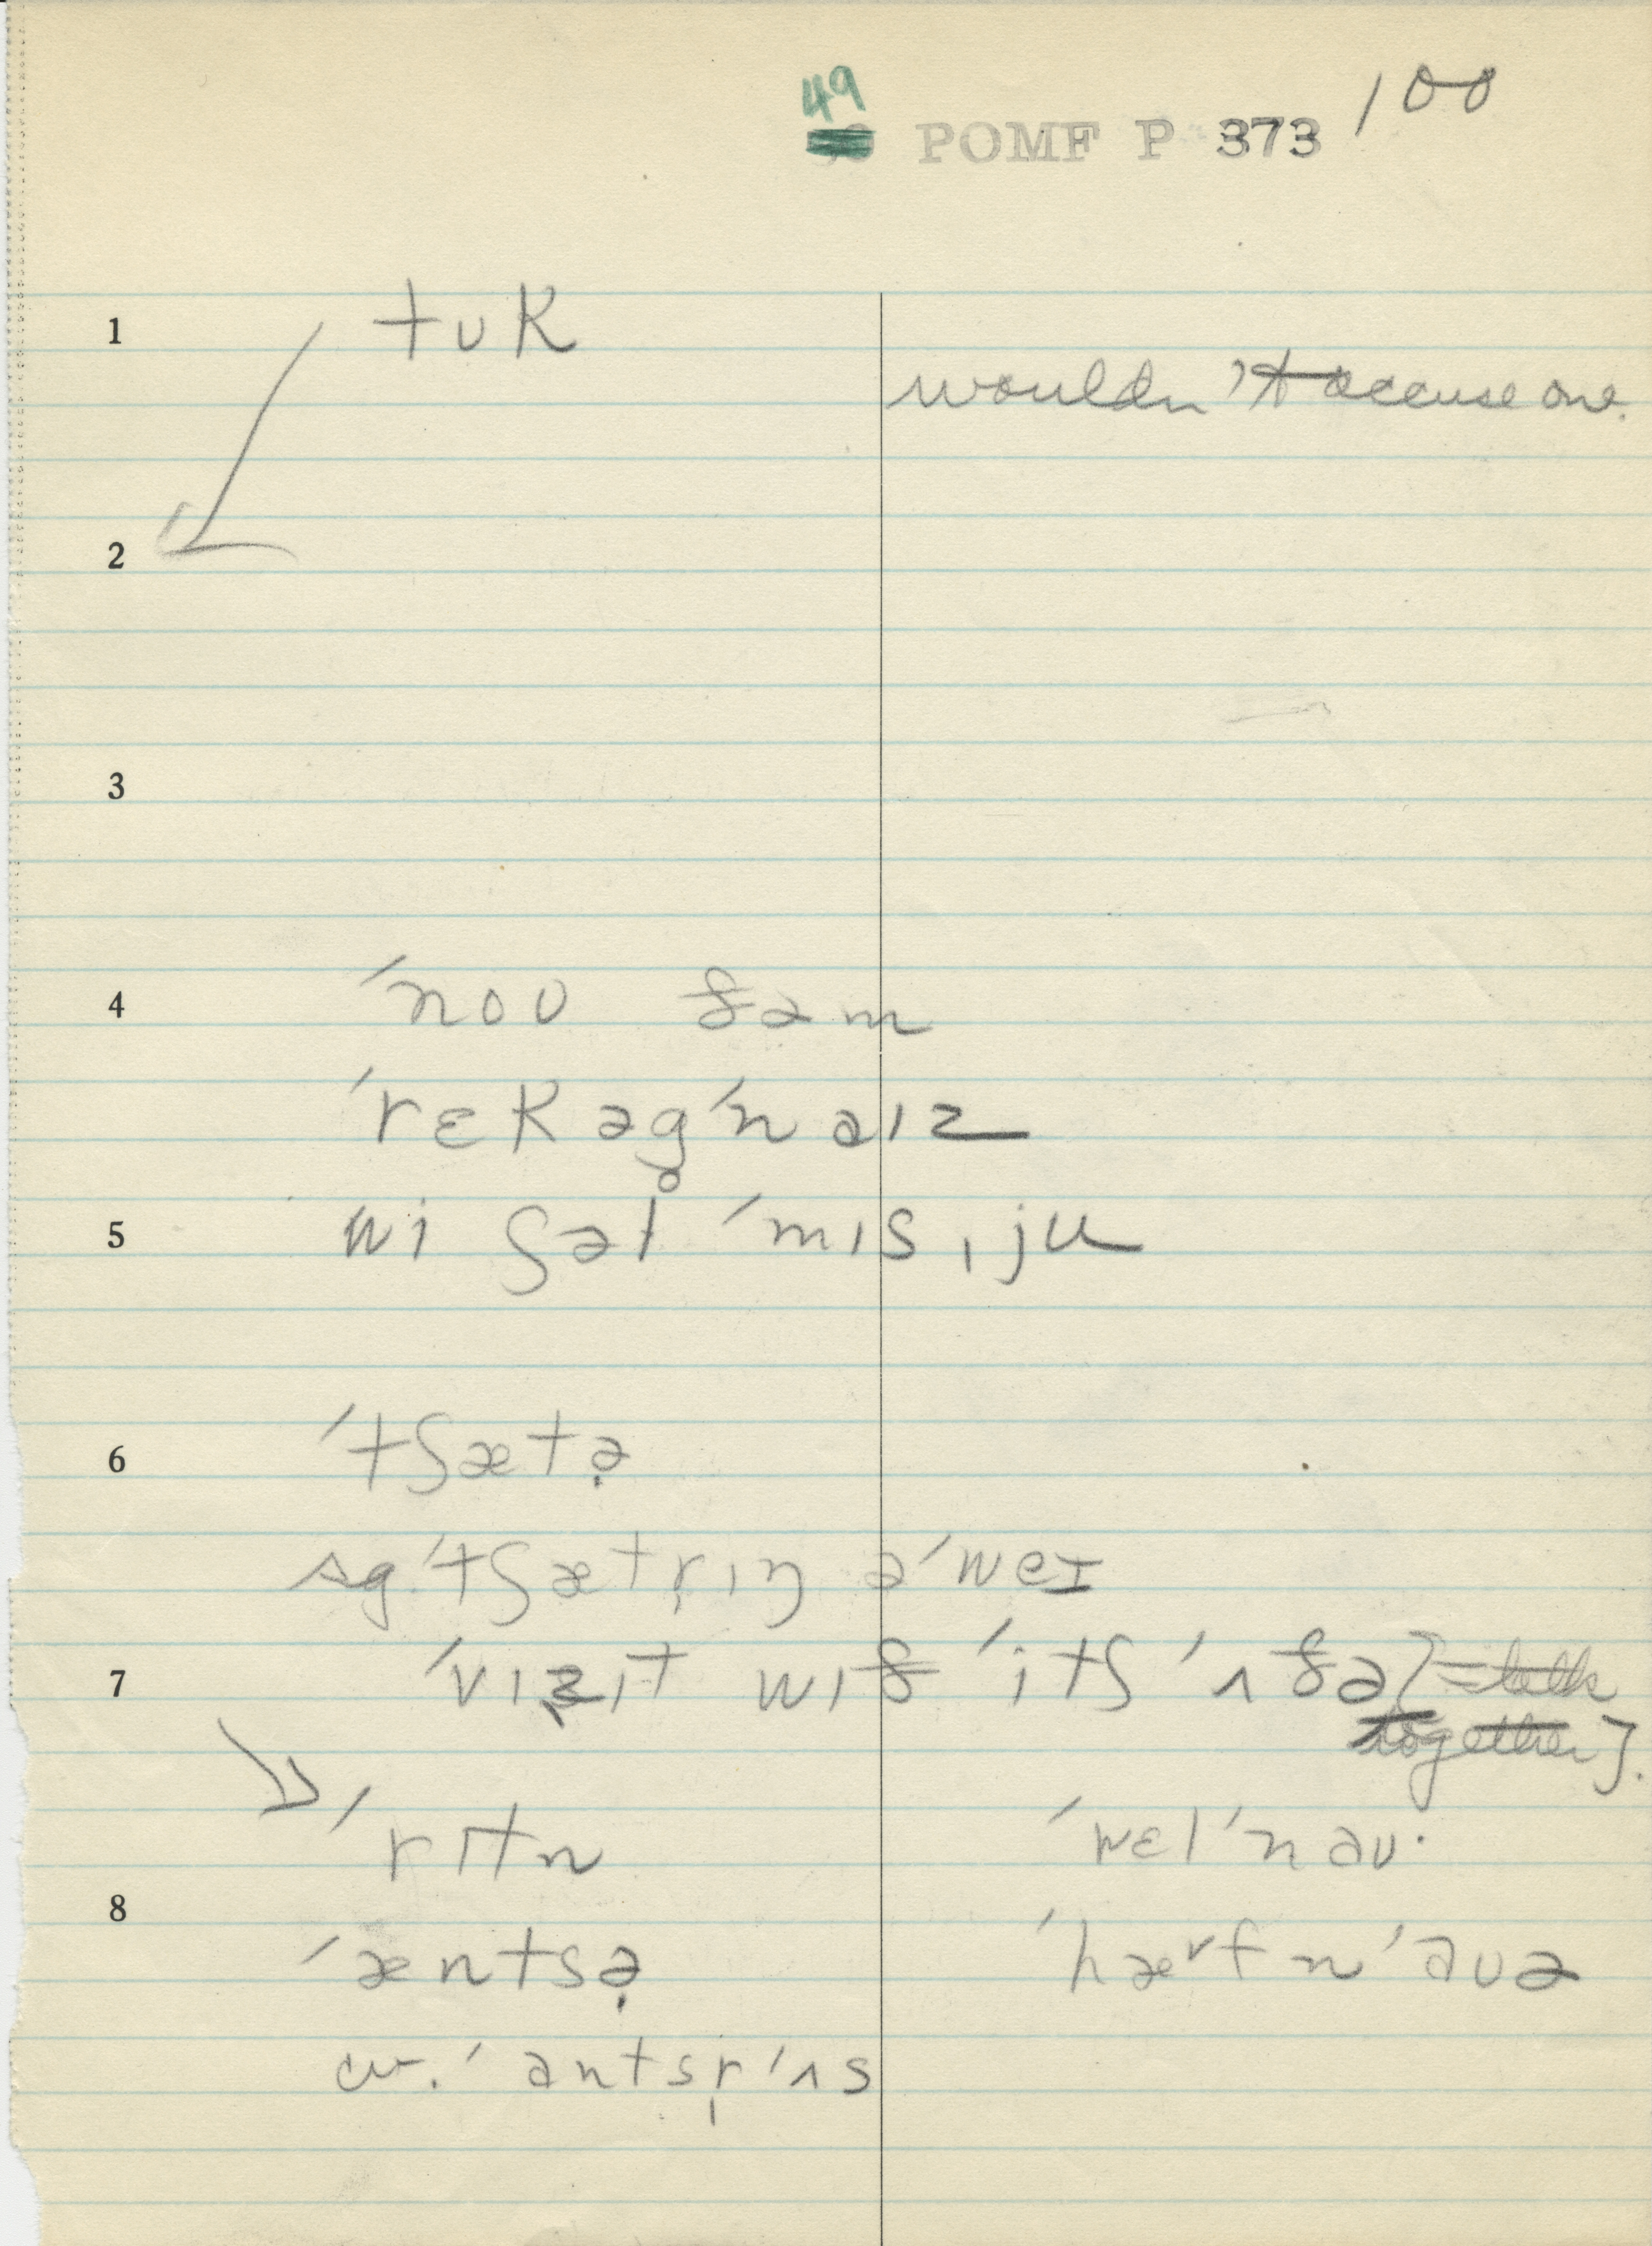 49
POMF P 373 100
1 tʊk
wouldn't accuse one.
2
3
4 ˈnoʊ ðəm
ˈrɛkəgˈnaɪz
5 wi ʃəl ˈmɪs ˌju
6 ˈtʃætə̣
sg. ˈtʃætṛɪŋ əˈweɪ
7 ˈvɪzɪt wɪð ˈitʃ ˈʌðə [= talk
together].
ˈrɪtn ˈwɛl ˈnaʊ·
8
ˈæntsə̣ ˈhævf n ˈaʊə
cv. ˈantsṛ ˈʌs